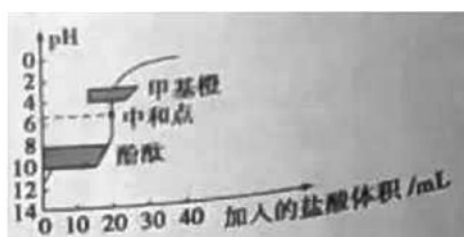 pH
0
2
4
6
8
10
12
14
甲基橙
中和点
酚酞
0 10 20 30 40 加入的盐酸体积/mL